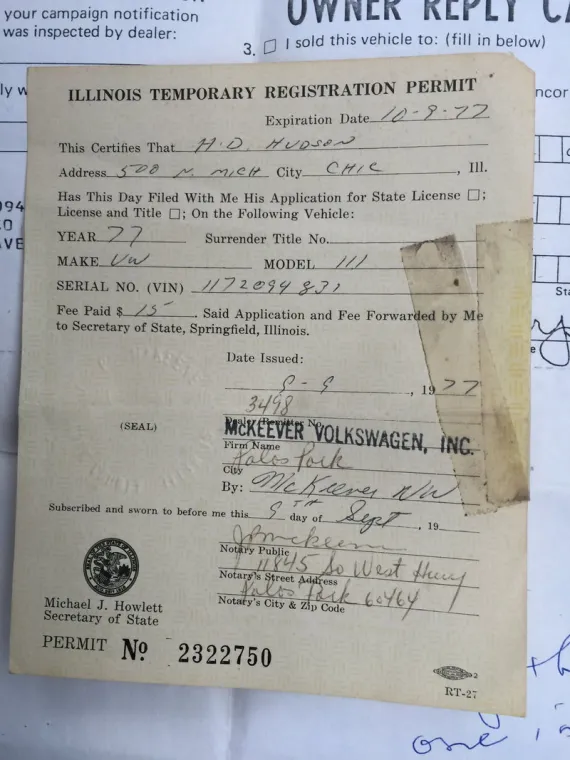 your campaign notification
was inspected by dealer:
OWNER REPLY
3. ☐ I sold this vehicle to: (fill in below)
ILLINOIS TEMPORARY REGISTRATION PERMIT
Expiration Date 10-9-77
This Certifies That H.D. HUDSON
Address 500 N. MICH City CHIC, Ill.
Has This Day Filed With Me His Application for State License ☐;
License and Title ☐; On the Following Vehicle:
YEAR 77 Surrender Title No.
MAKE VW MODEL 111
SERIAL NO. (VIN) 1172094831
Fee Paid $ 15. Said Application and Fee Forwarded by Me
to Secretary of State, Springfield, Illinois.
Date Issued:
9-9, 1977
3498
Dealer/Remitter No.
McKEEVER VOLKSWAGEN, INC.
Firm Name
Palos Park
City
By: McKeever VW
(SEAL)
Subscribed and sworn to before me this 9TH day of Sept, 19
Notary Public
11845 So West Hwy
Notary's Street Address
Palos Park 60464
Notary's City & Zip Code
Michael J. Howlett
Secretary of State
PERMIT No 2322750
2
RT-27
one